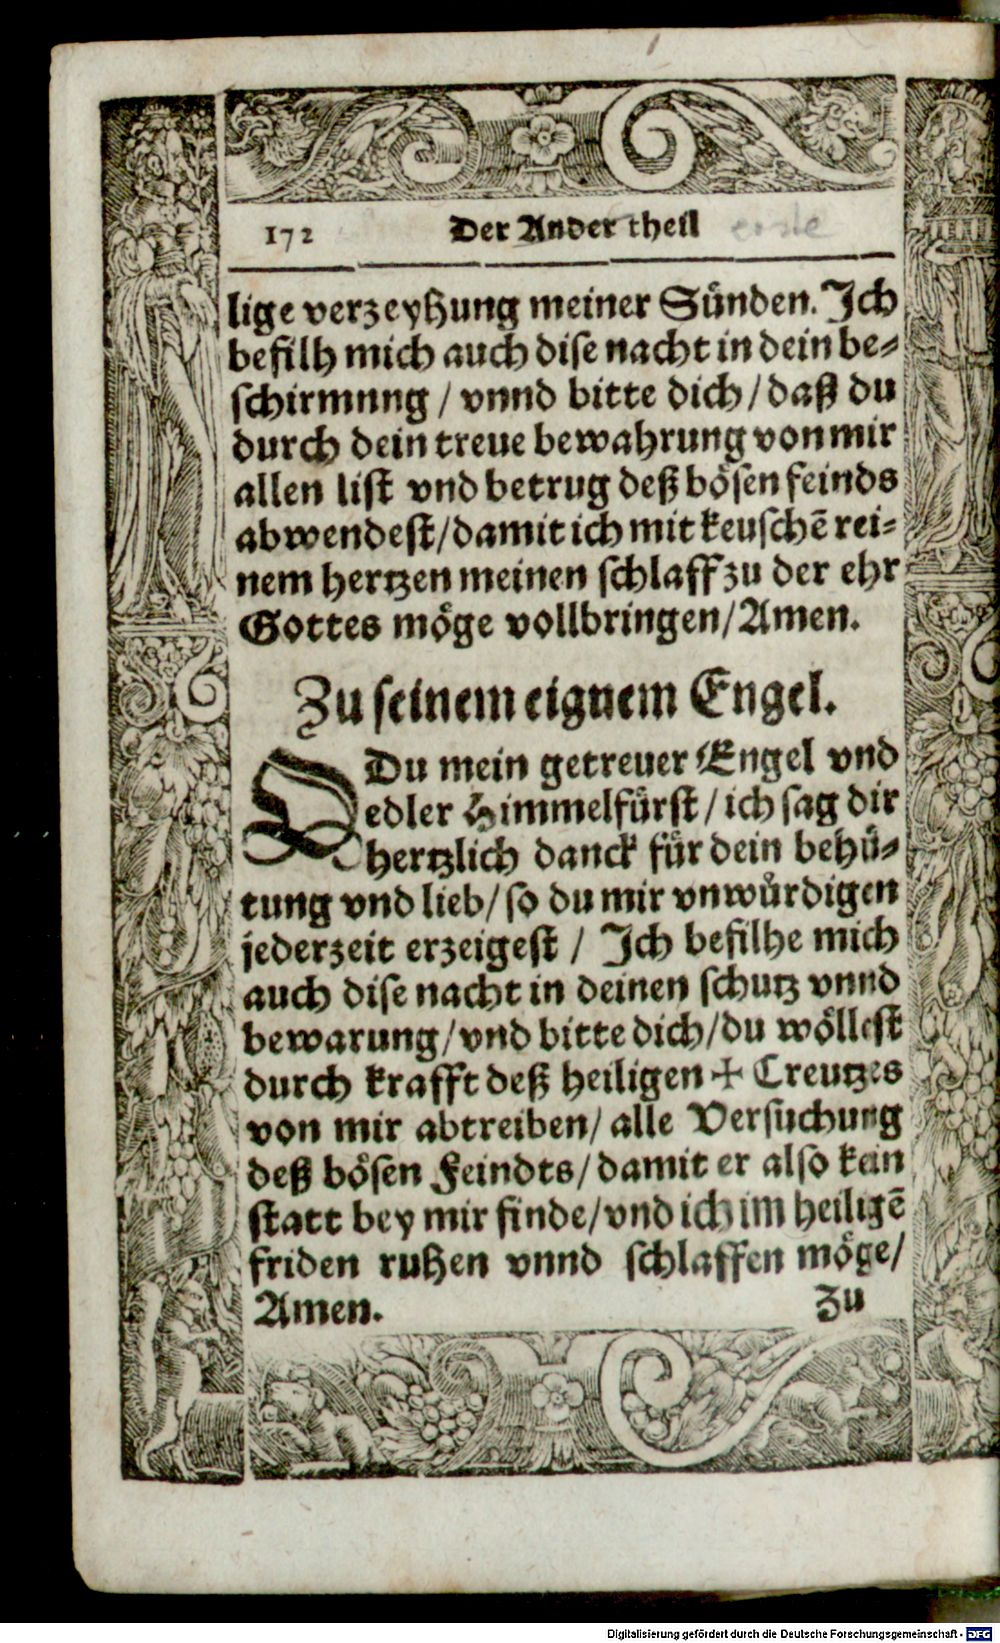 172 Der Ander theil erste
lige verzeyhung meiner Sünden. Ich
befilh mich auch dise nacht in dein be⸗
schirmung / vnnd bitte dich / daß du
durch dein treue bewahrung von mir
allen list vnd betrug deß bösen feinds
abwendest / damit ich mit keuschē rei⸗
nem hertzen meinen schlaff zu der ehr
Gottes möge vollbringen / Amen.
Zu seinem eignem Engel.
DDu mein getreuer Engel vnd
edler Himmelfürst / ich sag dir
hertzlich danck für dein behü⸗
tung vnd lieb / so du mir vnwůrdigen
jederzeit erzeigest / Ich befilhe mich
auch dise nacht in deinen schutz vnnd
bewarung / vnd bitte dich / du wöllest
durch krafft deß heiligen ✢ Creutzes
von mir abtreiben / alle Versuchung
deß bösen Feindts / damit er also kein
statt bey mir finde / vnd ich im heiligē
friden ruhen vnnd schlaffen möge /
Amen.
Zu
Digitalisierung gefördert durch die Deutsche Forschungsgemeinschaft - DFG